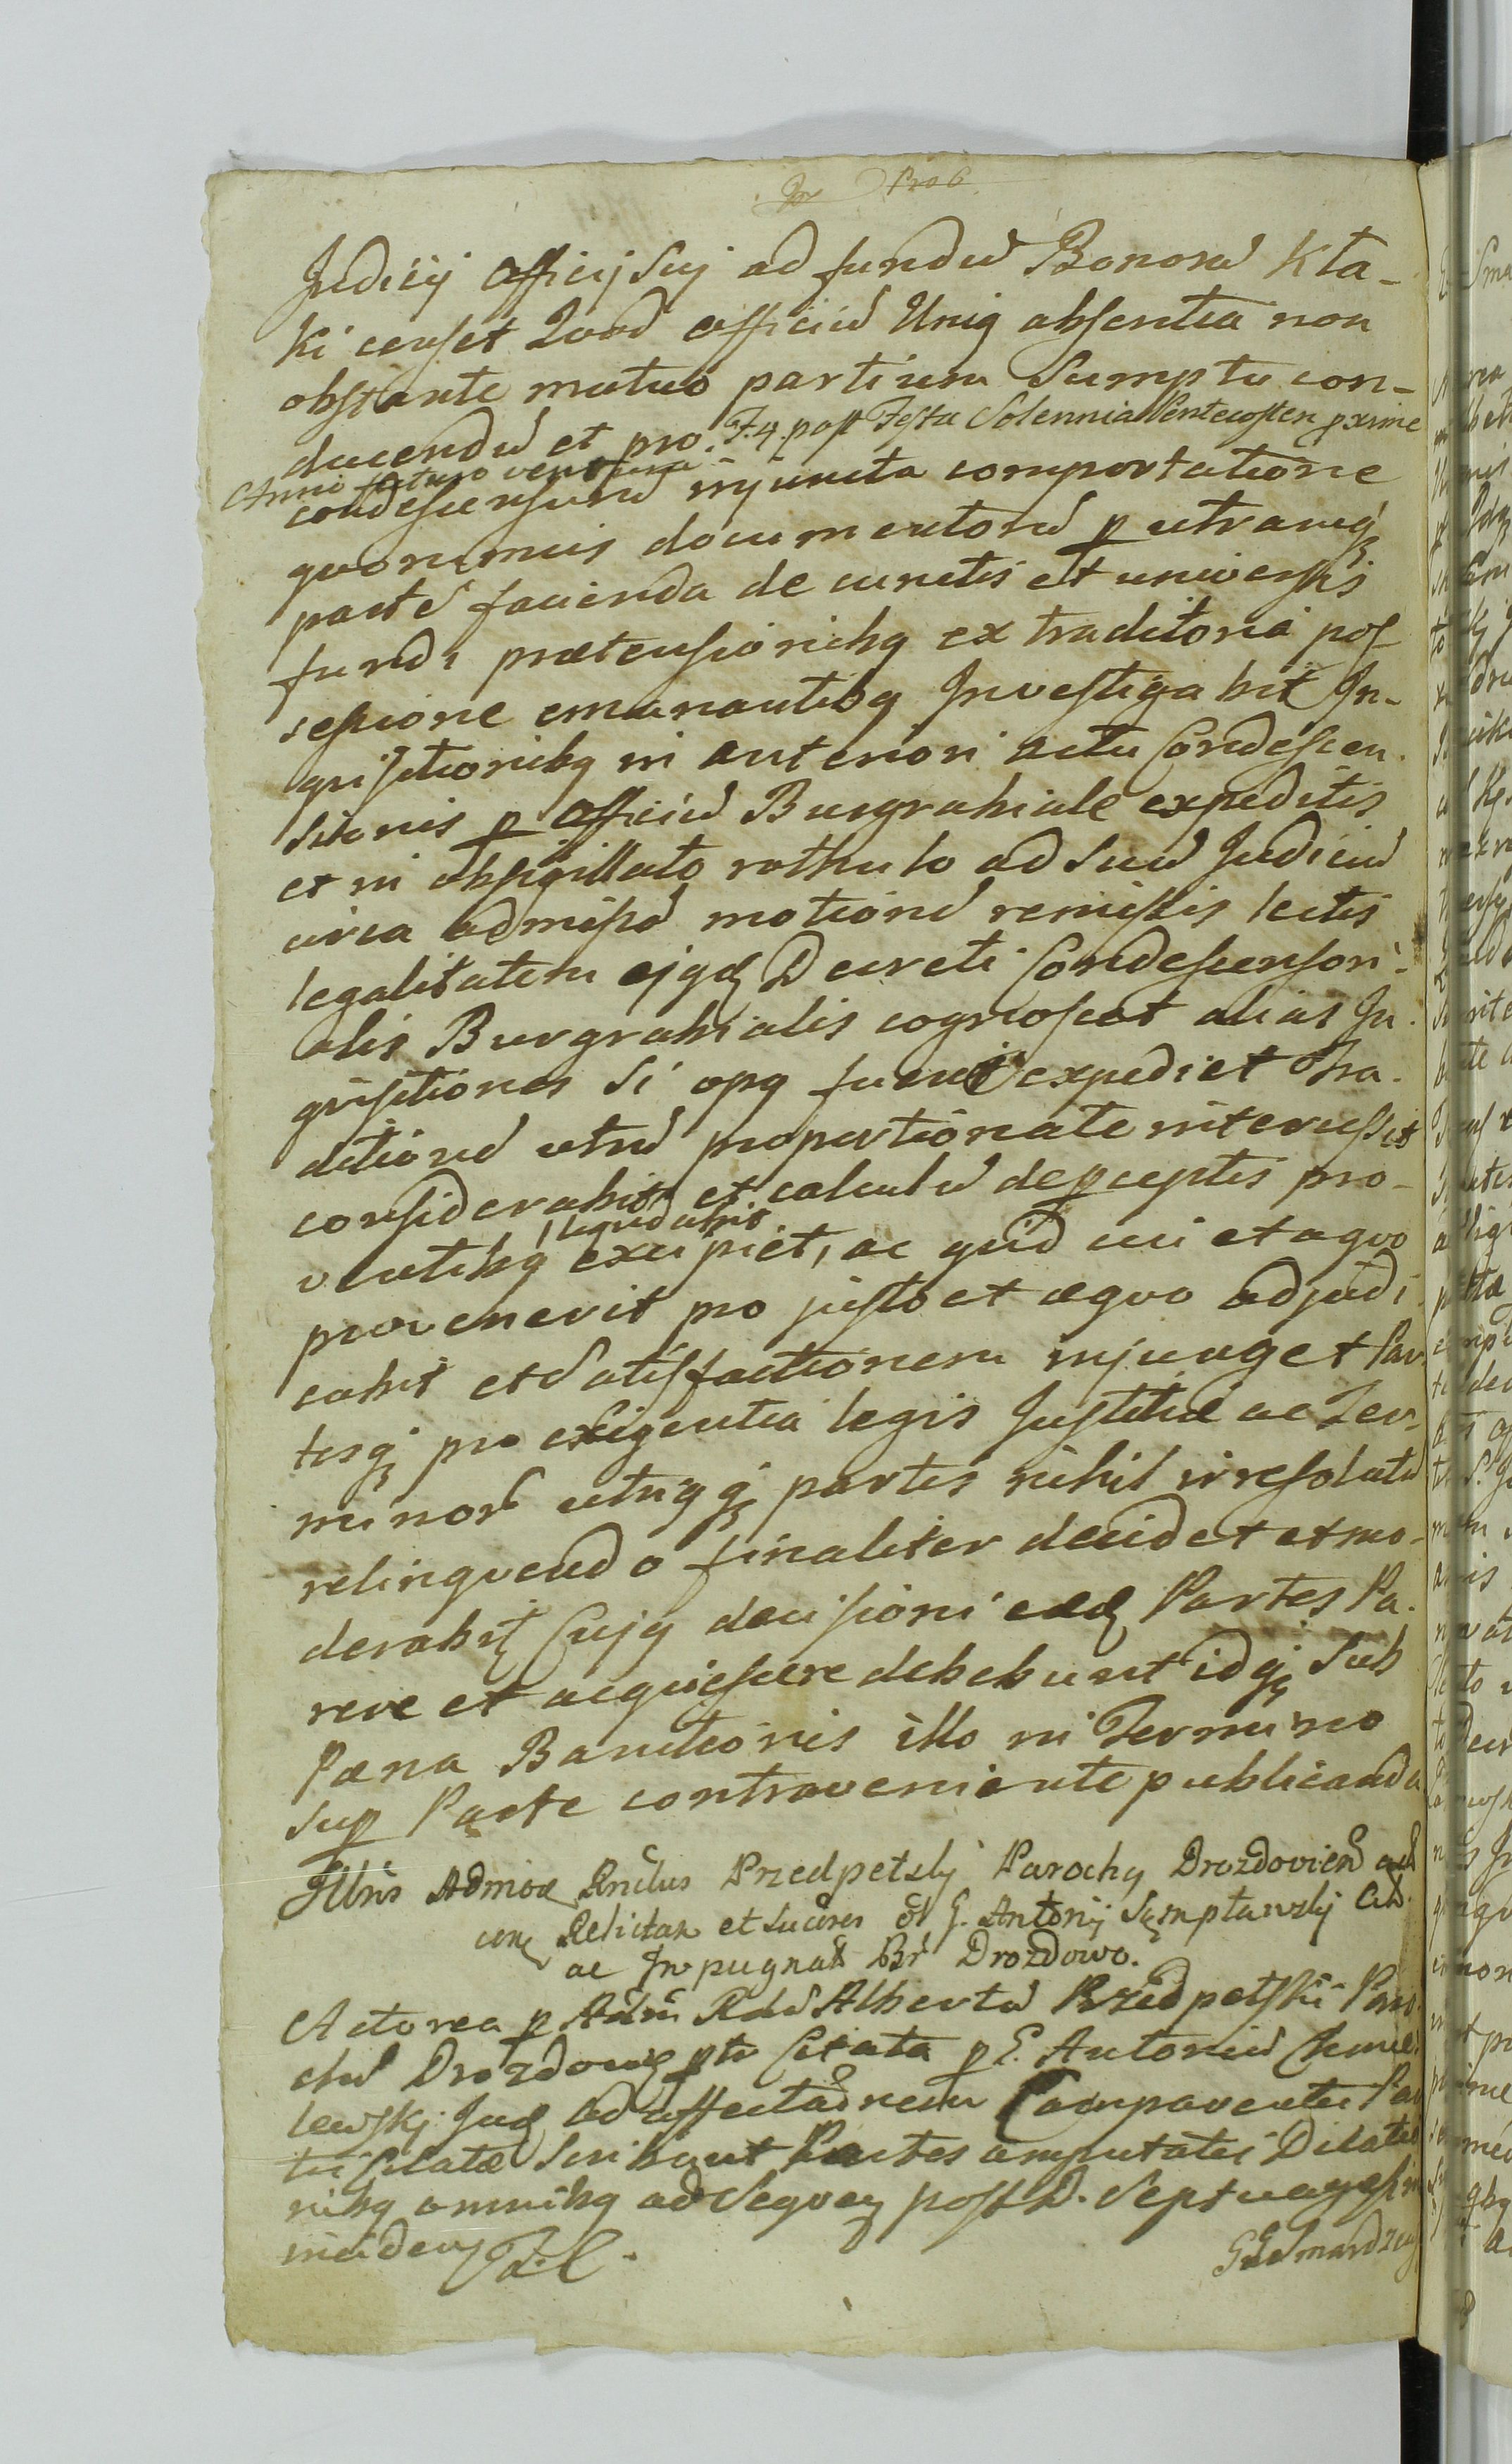 Prob
Judicij Officij Suj ad fundũ Bonorũ Kła-
ki censet Quod officiũ Unig absentia non
obstante mutuo partium Sumptu con-
ducendũ et pro. F. 4. post Festa Solennia Pentecosten pxime
Anni futuro ventura
condescensurũ injuncta comportatione
quorumvis documentorũ p utramq
partẽ facienda de cunctis et universis
fundi prætensionibq ex traditoria pos
sessione emanantibq Investigabit In-
quisitionibq in anteriori actu Condescen
sionis p Officiũ Burgrabiale expeditis
et in obsigillato rothulo ad Suũ Judiciũ
circa admissã motionẽ remissis lectis
legalitatem ejqd Decreti Condescensori-
alis Burgrabialis cognoscet alias In
quisitiones Si opq fuerit expediet Tra
ditionẽ utrũ proportionate intercessit
considerabit et calculũ depceptis pro-
liquidabit
ventibq excipiet, ac quid cui et aquo
provenerit pro justo et æquo adjudi
cabit et Satisfactionem injunget Par
tesq pro exigentia legis Justitiæ ac Ter
minorũ utriqq partis nihil irresolutũ
relinquendo finaliter decidet et mo-
derabit Cujq decisioni eæd Partes Pa
rere et acquiescere debebunt idq Sub
Pæna Banitionis illo in Termino
sup Parte contraveniente publicanda
Illris Admod Rndus Przedpetskj Parochq Drozdovien act
cong Relictam et Succres ol G. Antonij Sęmpławskj Cit.
ac Impugnat Br Drozdowo.
Actorea p Adm Rdũ Albertũ Przedpetski Paro
chũ Drozdovien pte Citata p G. Antoniũ Chmie
lewskj Jud ad affectãõnem Comparentis Par
tis Citatæ Scribant Partes amputatis Dilatio
nibq omnibq ad Sequen post D. Septuagesim
inciden
GSSmardzewskj